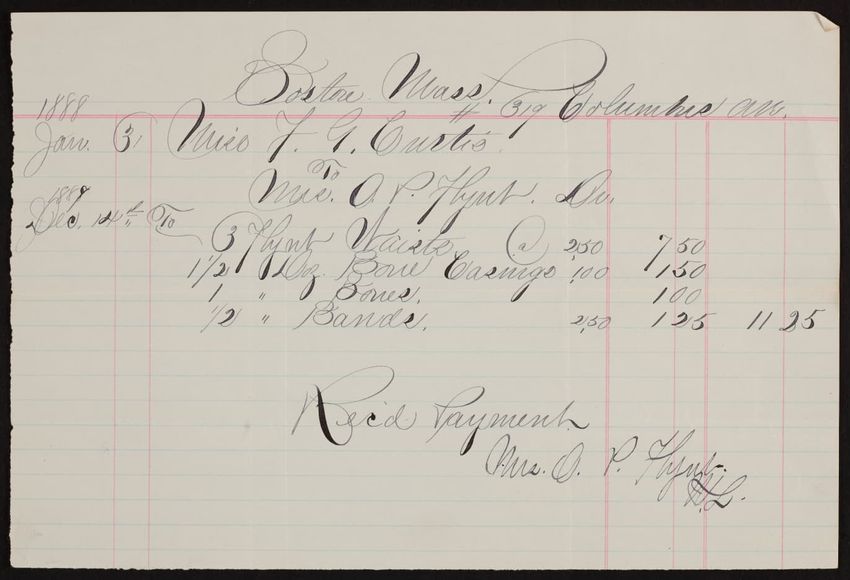 Boston Mass.
# 319 Columbus av.
1888
Jan. 3, Miss F. G. Curtis.
To
Mrs. O. P. Flynt. Dr.
1887
Dec. 14th To
3 Flynt Waists @ 2,50 7 50
1 1/2 Dz. Bone Casings ,100 1 50
1 " Bones. 1 00
1/2 " Bands. 2,50 1 25 11 25
Rec'd Payment
Mrs. O. P. Flynt.